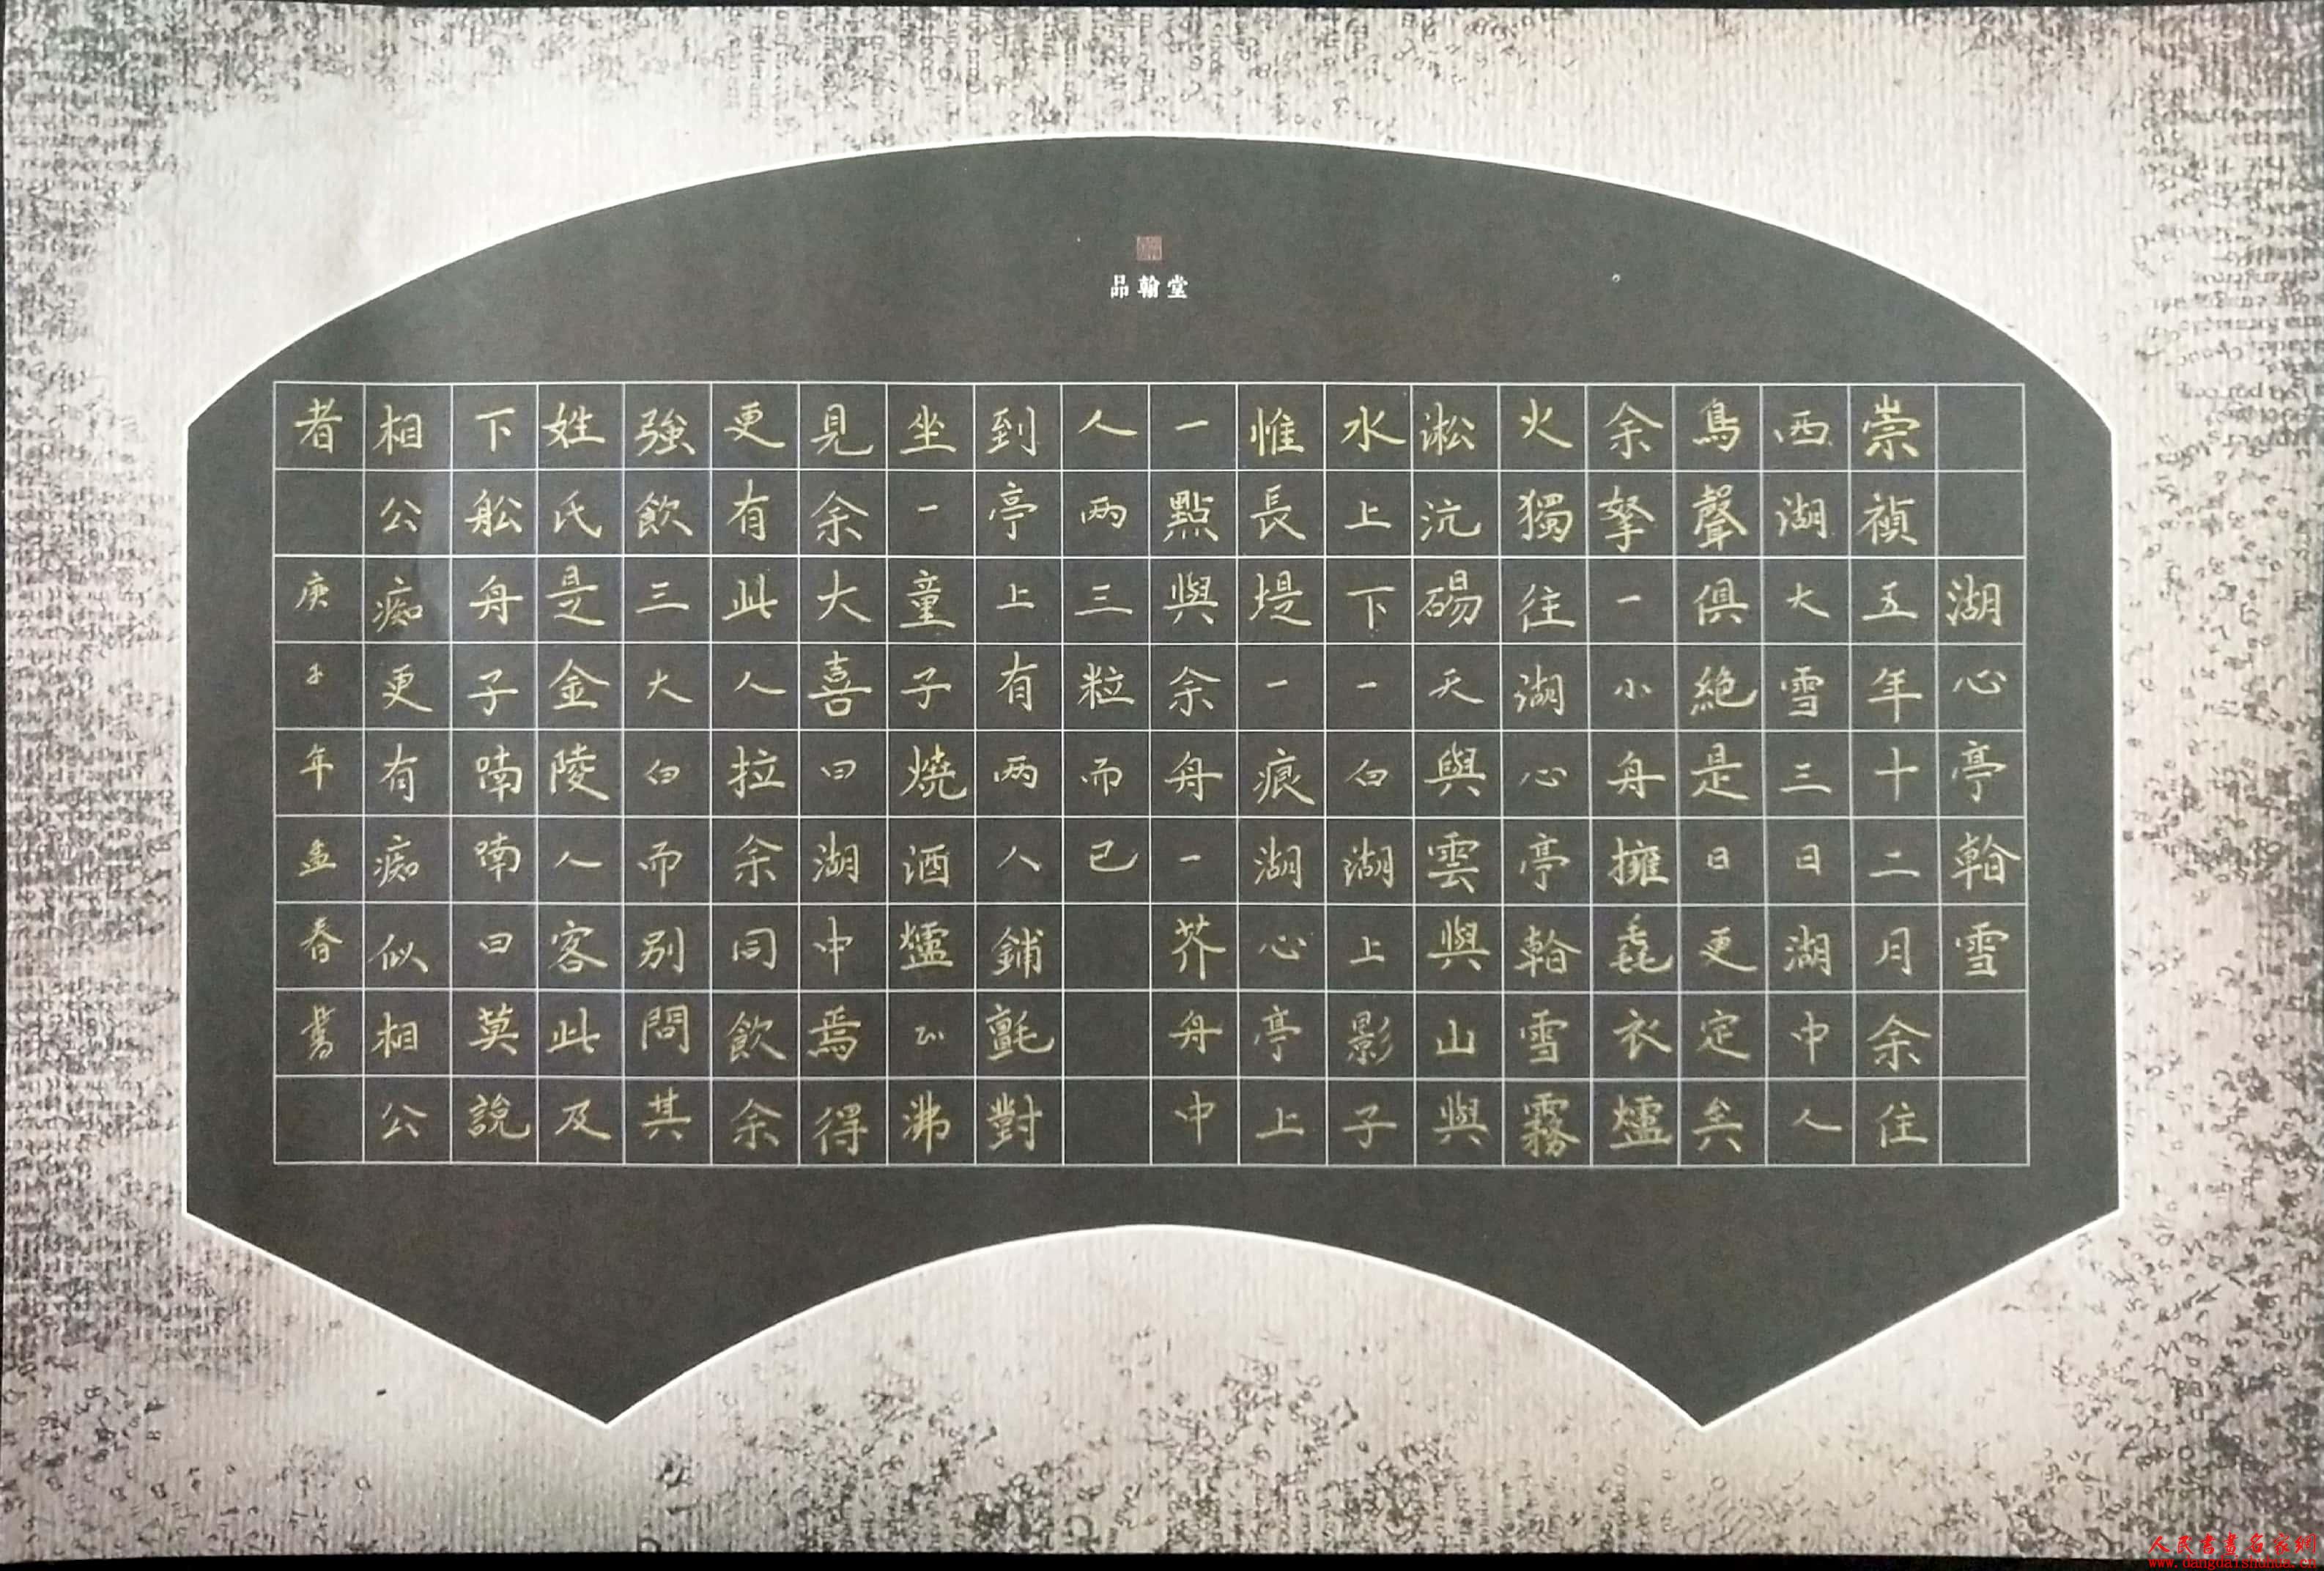 品翰堂
湖心亭翰雪
崇禎五年十二月余住
西湖大雪三日湖中人
鳥聲俱絕是日更定矣
余拏一小舟擁毳衣爐
火獨往湖心亭翰雪霧
淞沆碭天與雲與山與
水上下一白湖上影子
惟長堤一痕湖心亭上
一點與余舟一芥舟中
人兩三粒而已
到亭上有兩人鋪氈對
坐一童子燒酒爐正沸
見余大喜曰湖中焉得
更有此人拉余同飲余
強飲三大白而別問其
姓氏是金陵人客此及
下舩舟子喃喃曰莫說
相公痴更有痴似相公
者 庚子年孟春書
人民書畫名家網
www.dangdaishuhua.cn